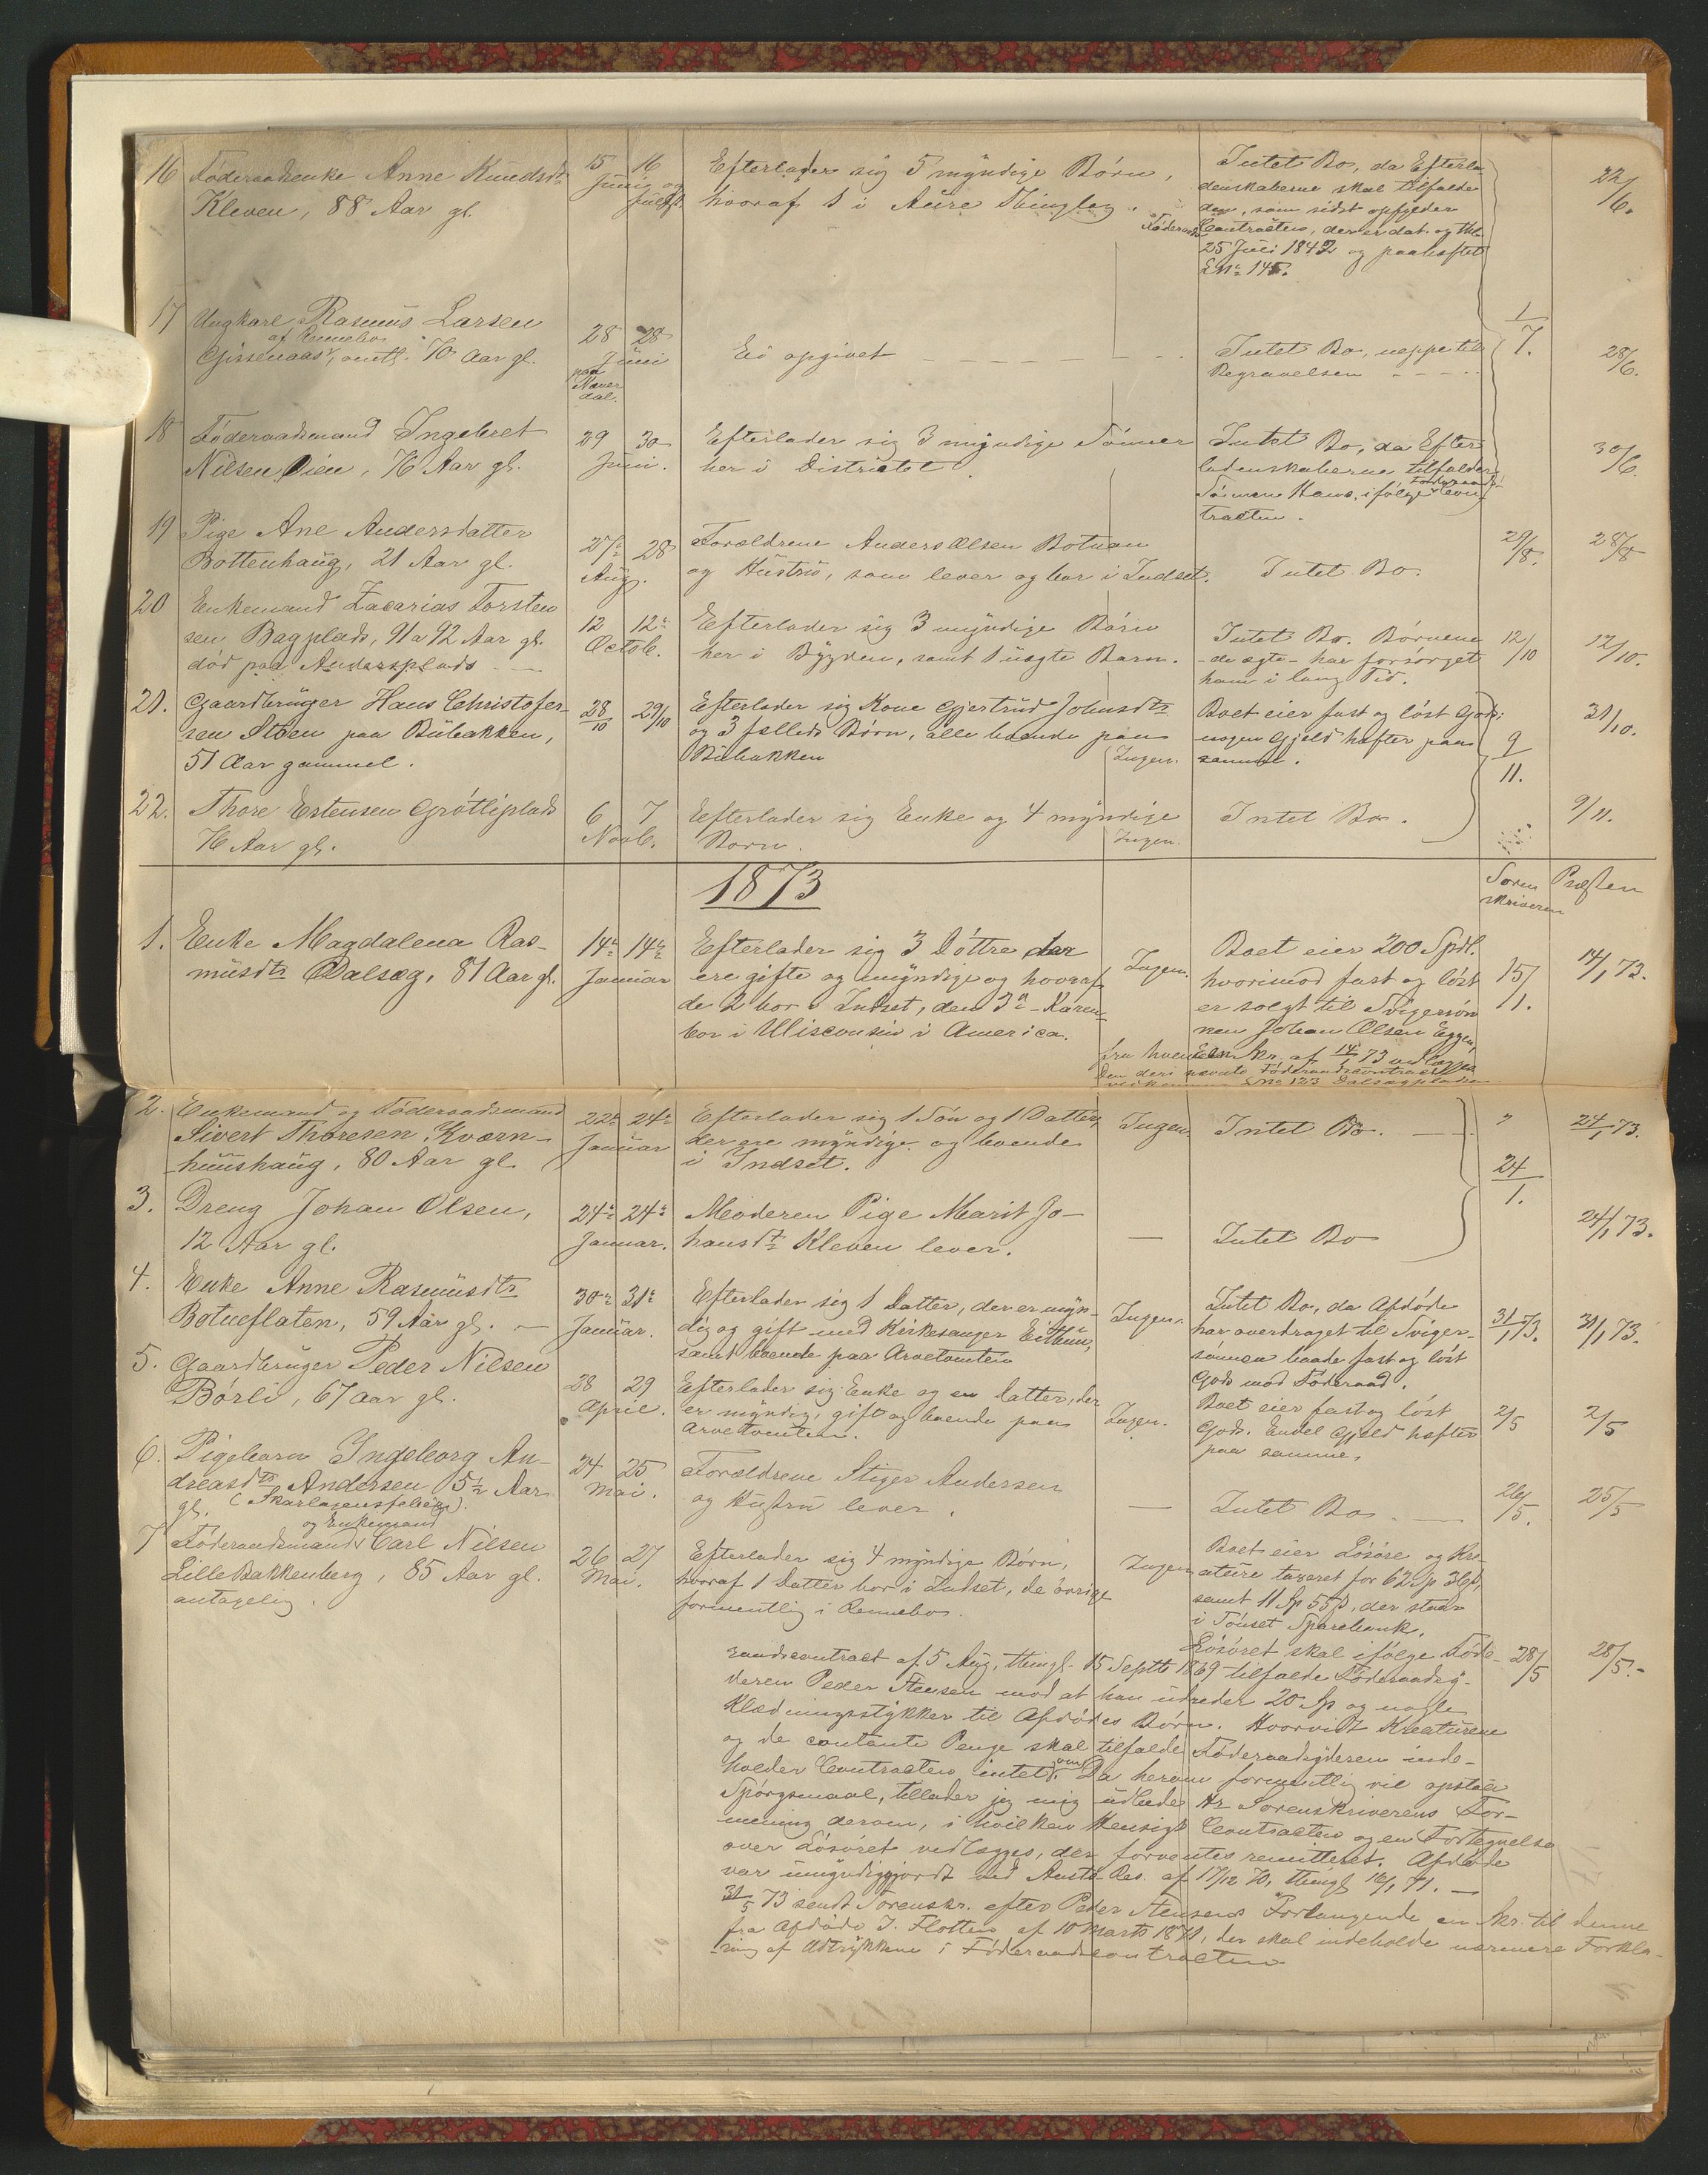 16 Føderaadsenke Anne Knudsdtr
Kleven, 88 Aar gl.
15 16
Juni
Efterlader sig 5 myndige Børn,
hvoraf 1 i Aure Thinglag.
Intet Bo, da Efterla-
denskaberne skal tilfalde
den, som sidst opfylder
Føderaads
Contracten, der er dat. og thl.
25 Juli 1842 og paaheftet
LNr 145.
22/6.
17 Ungkarl Rasmus Larsen
af Rennebo
Gisnaas, omtl. 70 Aar gl.
28 28
Juni
paa
Næver
dal.
Ei opgivet - - - -
Intet Bo, neppe til
Begravelsen - - - -
1/7.
28/6.
18 Føderaadsmand Ingebret
Nilsen Øien, 76 Aar gl.
29 30
Juni.
Efterlader sig 3 myndige Sønner
her i Districtet.
Intet Bo, da Efter
ladenskaberne tilfalder
Føderaads-
Sønnen Hans, ifølge Con-
tracten.
30/6.
19 Pige Ane Andersdatter
Bottenhaug, 21 Aar gl.
27de 28
Aug.
Forældrene Anders Olsen Botnan
og Hustru, som lever og bor i Indset.
Intet Bo.
29/8.
28/8
20 Enkemand Zacarias Torsten
sen Bagplads, 91 a 92 Aar gl.
død paa Andersplads - -
12 12te
Octob.
Efterlader sig 3 myndige Børn
her i Bygden, samt 1 uægte Barn.
Intet Bo. Børnene
- de ægte - har forsørget
ham i lang Tid.
12/10
12/10.
21. Gaardbruger Hans Christofer-
sen Støen paa Bubakken,
51 Aar gammel.
28/10 29/10
Efterlader sig Kone Gjertrud Johnsdtr
og 3 fælleds Børn, alle boende paa
Bubakken
Ingen.
Boet eier fast og løst Gods:
nogen Gjeld hefter paa
samme.
9/11.
31/10.
22. Thore Estensen Grøtliplads
76 Aar gl.
6 7
Novb.
Efterlader sig Enke og 4 myndige
Børn.
Ingen.
Intet Bo.
9/11.
1873
Soren
skriveren
Præsten
1. Enke Magdalena Ras-
musdtr Dalsæg, 81 Aar gl.
14de 14de
Januar
Efterlader sig 3 Døttre der
ere gifte og myndige og hvoraf
de 2 bor i Indset, den 3die - Karen -
bor i Wisconsin i America.
Ingen.
Boet eier 200 Spdl.
hvorimod fast og løst
er solgt til Svigersøn
nen Johan Olsen Eggen,
fra hvem en Skr. af 14/1 73 vedlægges
Den deri nævnte Føderaadscontract
vedkommer LNo 123 Dalsægpladsen.
15/1.
14/1 73.
2. Enkemand og Føderaadsmand
Sivert Thoresen Kværn-
huushaug, 80 Aar gl.
22de 24de
Januar
Efterlader sig 1 Søn og 1 Datter,
der ere myndige og boende
i Indset.
Ingen.
Intet Bo. - -
"
24/1.
24/1 73.
3. Dreng Johan Olsen,
12 Aar gl.
24de 24de
Januar.
Moderen Pige Marit Jo-
hansdtr Kleven lever.
-
Intet Bo
24/1 73.
4. Enke Anne Rasmusdtr
Botneflaten, 59 Aar gl. -
30te 31te
Januar.
Efterlader sig 1 Datter, der er myn-
dig og gift med Kirkesanger Eithun,
samt boende paa Arvetomten
Ingen.
Intet Bo, da Afdøde
har overdraget til Sviger-
sønnen baade fast og løst
Gods mod Føderaad.
31/1 73.
31/1 73.
5. Gaardbruger Peder Nilsen
Børli, 67 Aar gl.
28 29
April.
Efterlader sig Enke og en Datter, der
er myndig, gift og boende paa
Arvetomten.
Ingen.
Boet eier fast og løst
Gods. Endel Gjeld hefter
paa samme.
2/5
2/5
6. Pigebarn Ingeborg An-
dreasdtr Andersen 5½ Aar
gl. (Skarlagensfeber).
24 25
Mai.
Forældrene Stiger Andersen
og Hustru lever.
-
Intet Bo. -
26/5.
25/5
og Enkemand
7 Føderaadsmand Carl Nilsen
Lille Bakkenberg, 85 Aar gl.
antagelig.
26 27
Mai.
Efterlader sig 4 myndige Børn,
hvoraf 1 Datter bor i Indset, de øvrige
formentlig i Rennebo.
Ingen
Boet eier Løsøre og Kre-
ature taxeret for 62 Sp 36 s,
samt 11 Sp 55 s, der staar
i Tønset Sparebank.
Løsøret skal ifølge Føde-
28/5
28/5.-
raadscontract af 5 Aug, thingl. 15 Septb 1869 tilfalde Føderaadsy-
deren Peder Steensen mod at han udreder 20 Sp og nogle
Klædningsstykker til Afdødes Børn. Hvorvidt Kreaturene
og de contante Penge skal tilfalde Føderaadsyderen inde-
holder Contracten intet om. Da herom formentlig vil opstaa
Spørgsmaal, tillader jeg mig udbede Hr Sorenskriverens For-
mening derom, i hvilken Hensigt Contracten og en Fortegnelse
over Løsøret vedlægges, der forventes remitteret. Afdøde
var umyndiggjordt ved Amts Res. af 17/12 70, thingl 16/1 71. -
31/5 73 sendt Sorenskr. efter Peder Steensens Forlangende en Skr. til denne
fra Afdøde J. Flotten af 10 Marts 1871, der skal indeholde nærmere Forkla-
ring af Udtrykkene i Føderaadscontracten